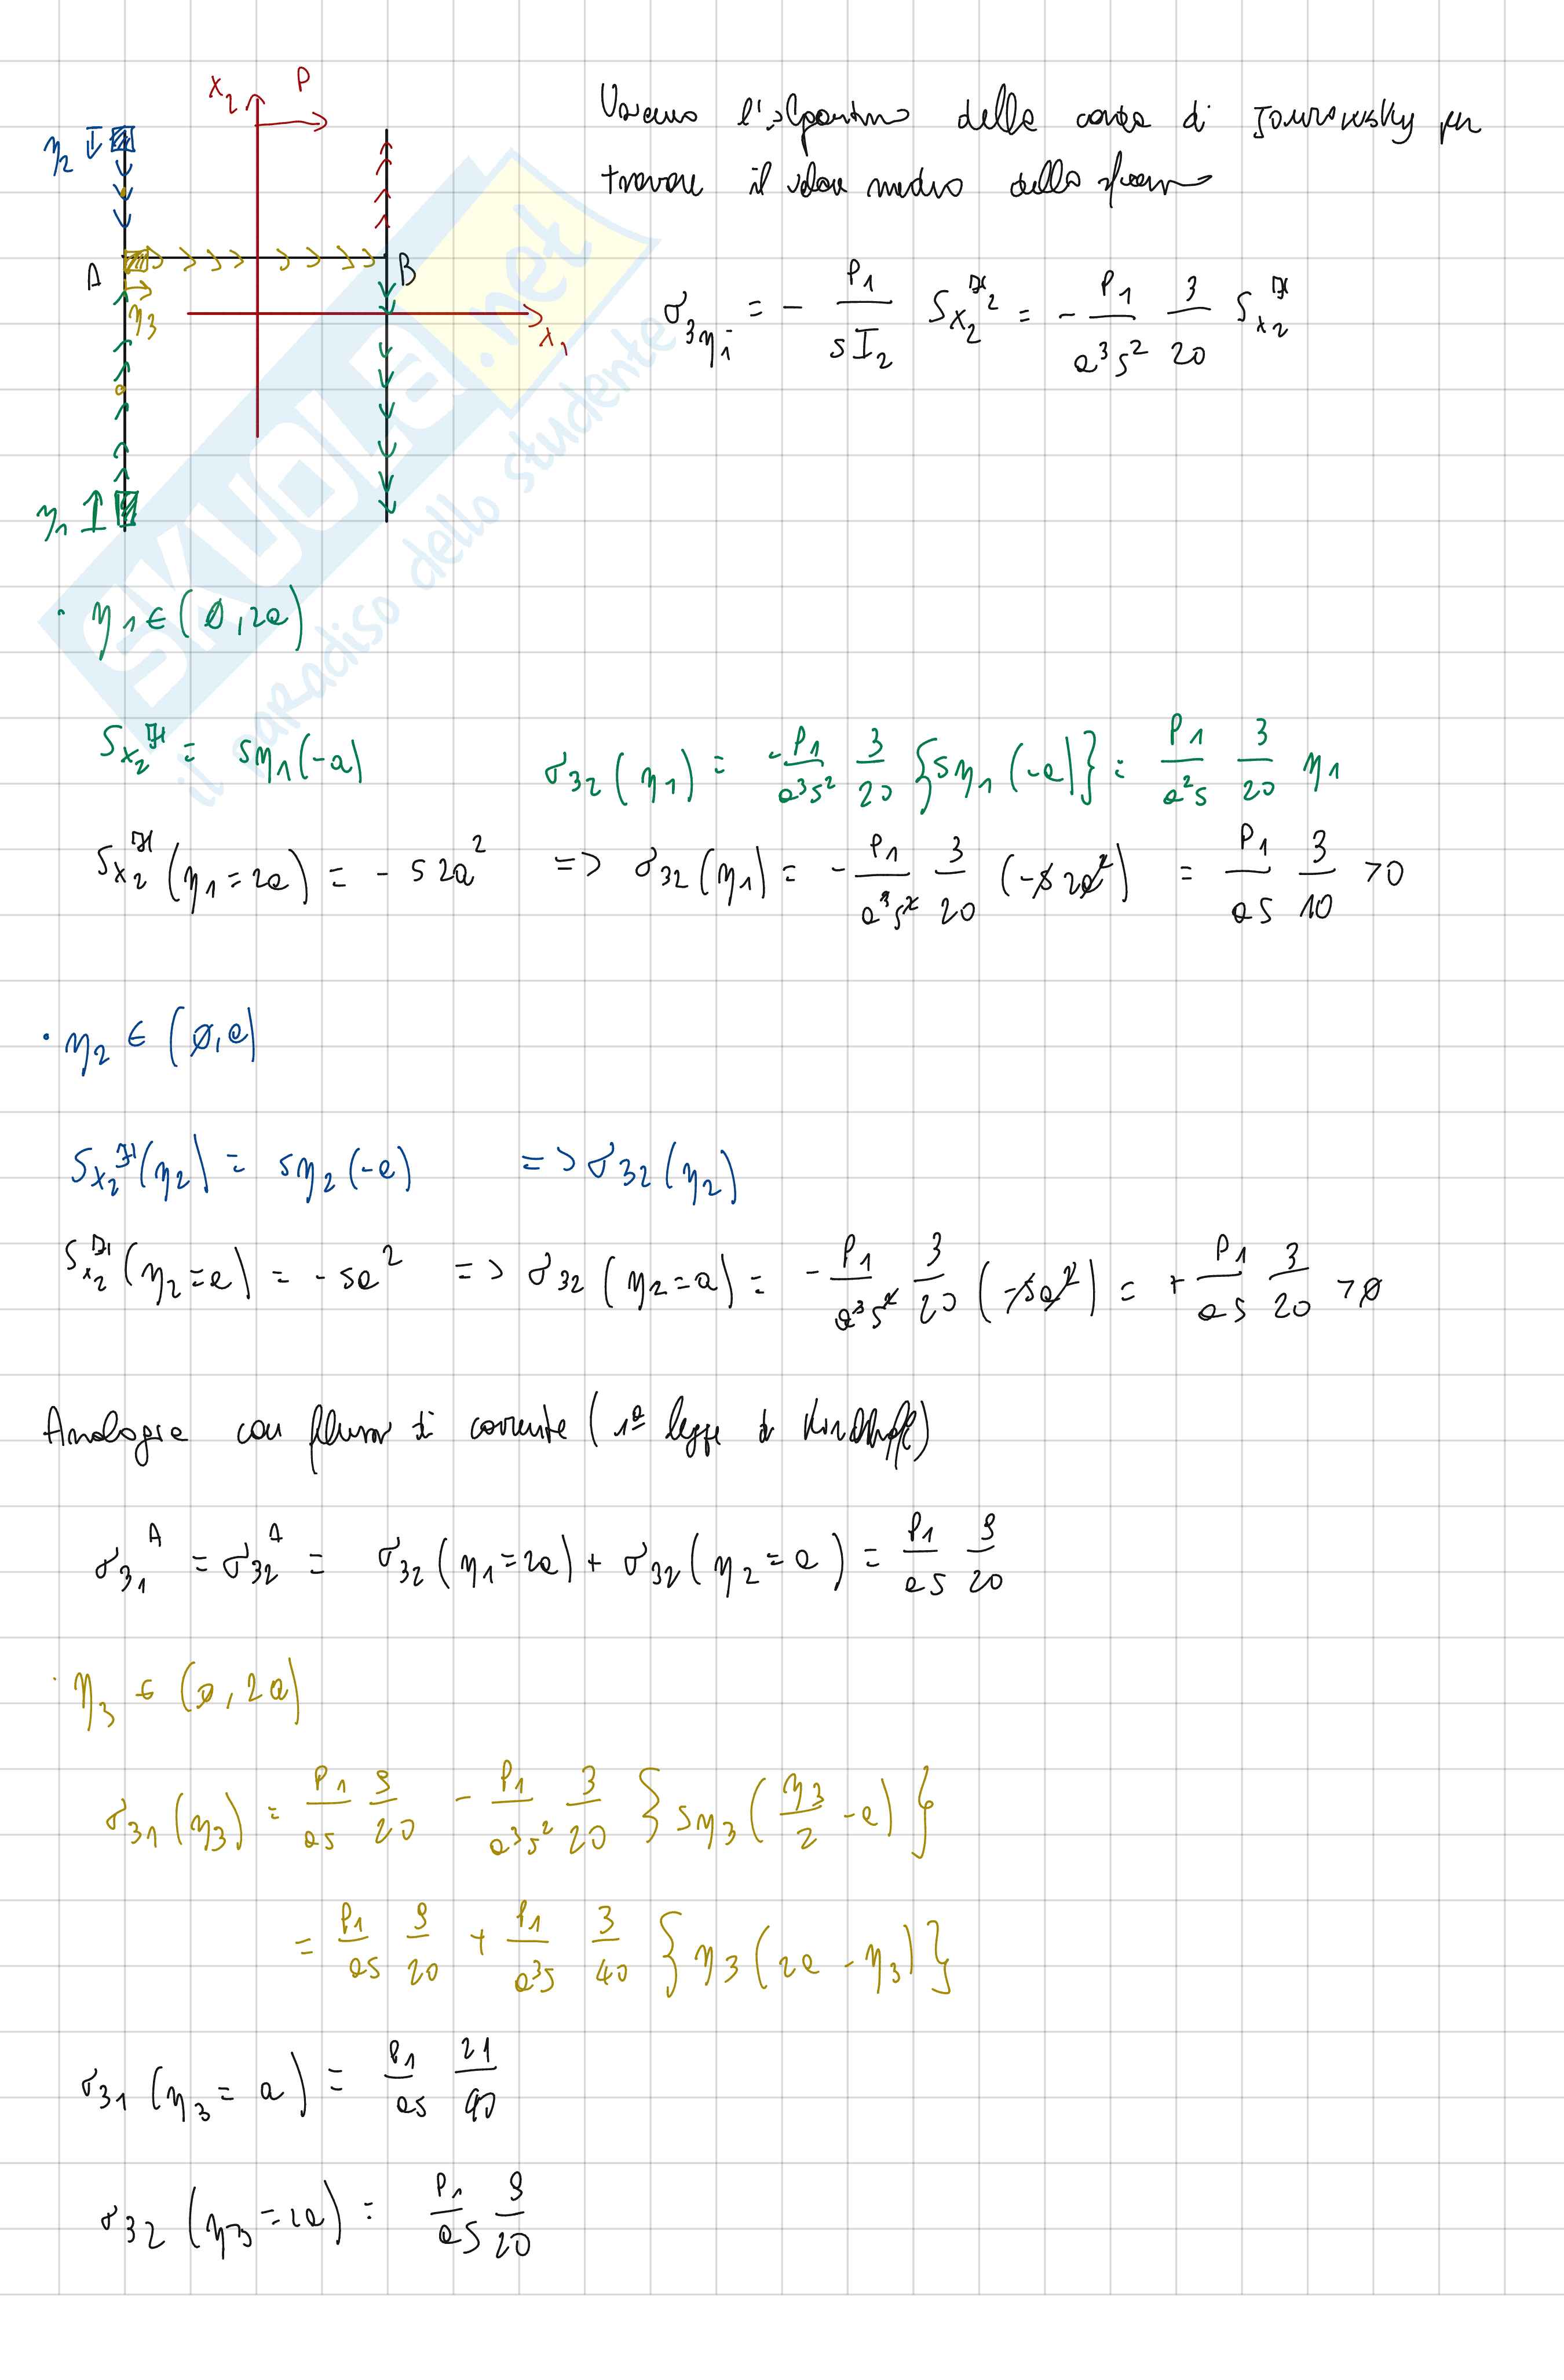 x₂ P
η₂
A B
η₃
x₁
η₁
Usiamo l'algoritmo della corda di Jourawsky per
trovare il valor medio dello sforzo
σ₃ηi = - P₁/(s I₂) Sx₂^(*)² = - P₁/(a³s²) 3/20 Sx₂^*
SKUOLA.net
il paradiso dello studente
· η₁ ∈ (0, 2a)
Sx₂^* = sη₁(-a) σ₃₂(η₁) = - P₁/(a³s²) 3/20 {sη₁(-a)} = P₁/(a²s) 3/20 η₁
Sx₂^*(η₁=2a) = - s2a² => σ₃₂(η₁) = - P₁/(a³s²) 3/20 (-s2a²) = P₁/(as) 3/10 >0
· η₂ ∈ (0, a)
Sx₂^*(η₂) = sη₂(-a) => σ₃₂(η₂)
Sx₂^*(η₂=a) = - sa² => σ₃₂(η₂=a) = - P₁/(a³s²) 3/20 (-sa²) = + P₁/(as) 3/20 >0
Analogia con flusso di corrente (1ª legge di Kirchhoff)
σ₃₁^A = σ₃₂^A = σ₃₂(η₁=2a) + σ₃₂(η₂=a) = P₁/(as) 9/20
· η₃ ∈ (0, 2a)
σ₃₁(η₃) = P₁/(as) 9/20 - P₁/(a³s²) 3/20 {sη₃(η₃/2 - a)}
= P₁/(as) 9/20 + P₁/(a³s) 3/40 {η₃(2a - η₃)}
σ₃₁(η₃=a) = P₁/(as) 21/40
σ₃₂(η₃=2a) = P₁/(as) 9/20